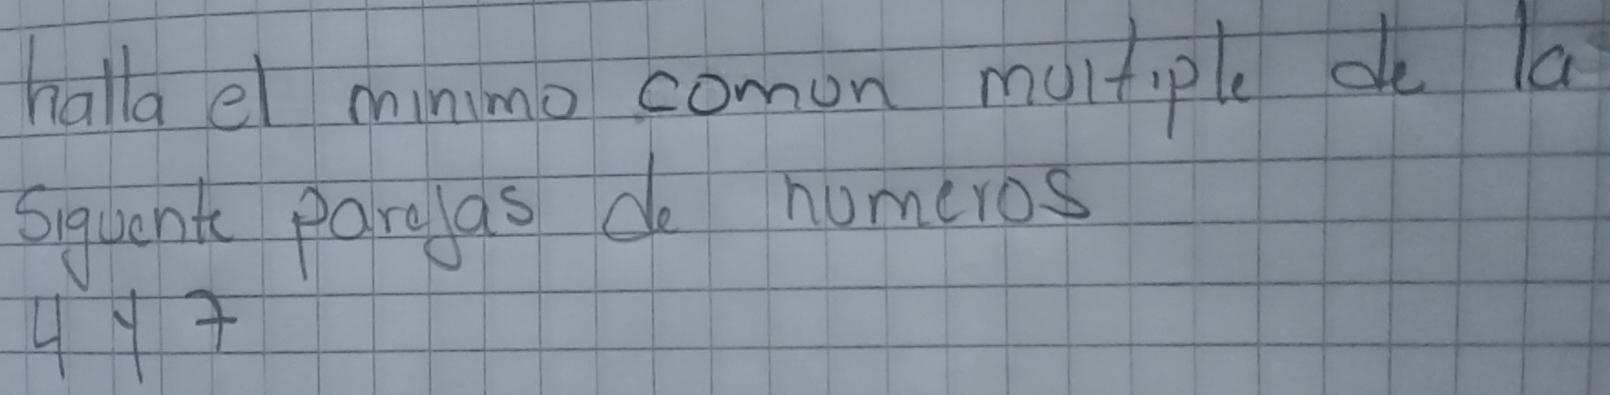 halla el minimo comun multiple de la
siguente parejas de numeros
4 y 7